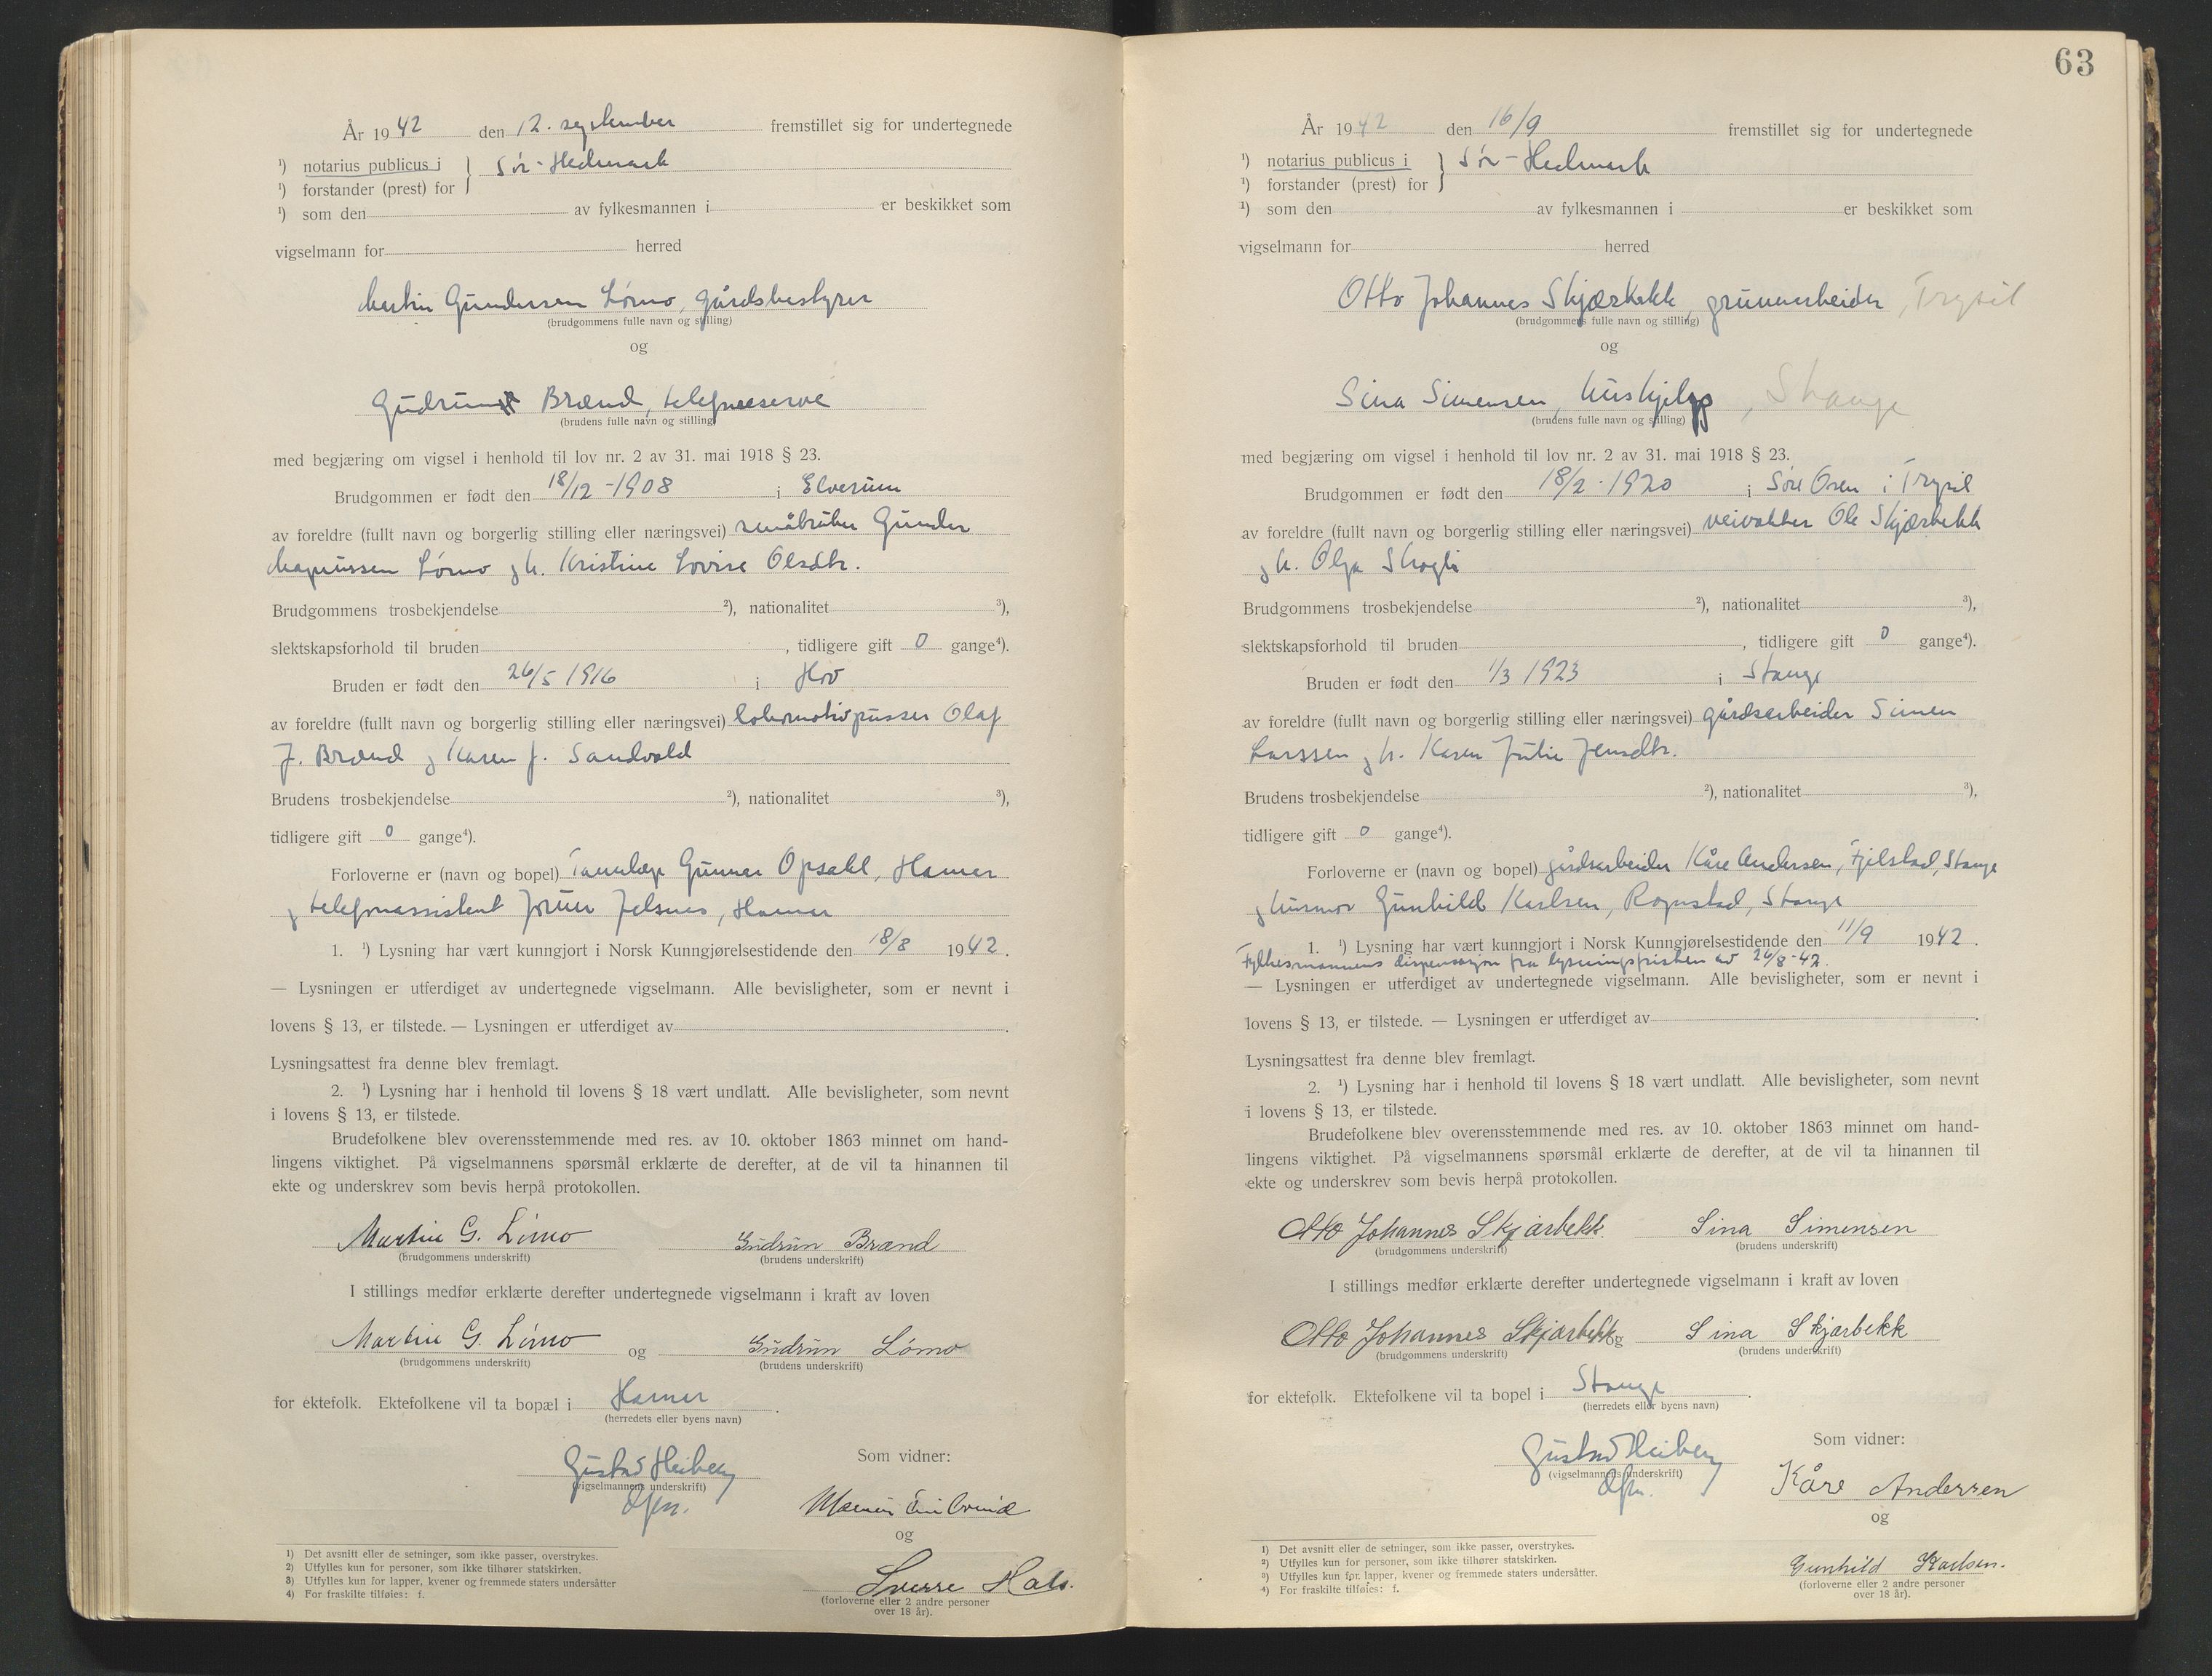 År 1942 den 12. september fremstillet sig for undertegnede
¹) notarius publicus i } Sør-Hedmark
¹) forstander (prest) for
¹) som den av fylkesmannen i er beskikket som
vigselmann for herred
Martin Gundersen Lømo, gårdsbestyrer
(brudgommens fulle navn og stilling)
og
Gudrun Brænd, telef
(brudens fulle navn og stilling)
med begjæring om vigsel i henhold til lov nr. 2 av 31. mai 1918 § 23.
Brudgommen er født den 18/12 - 1908 i Elverum
av foreldre (fullt navn og borgerlig stilling eller næringsvei) småbruker Gunder
Magnussen Lømo og h. Kristine Lovise Olsdtr.
Brudgommens trosbekjendelse ²), nationalitet ³),
slektskapsforhold til bruden , tidligere gift 0 gange⁴).
Bruden er født den 26/5 1916 i Hov
av foreldre (fullt navn og borgerlig stilling eller næringsvei) lokomotivpusser Olaf
J. Brænd og Karen J. Sandvold
Brudens trosbekjendelse ²), nationalitet ³),
tidligere gift 0 gange⁴).
Forloverne er (navn og bopel) Tannlæge Gunnar Opsahl, Hamar
og telefonassistent Jorun Jelsnes, Hamar
1. ¹) Lysning har vært kunngjort i Norsk Kunngjørelsestidende den 18/8 1942.
— Lysningen er utferdiget av undertegnede vigselmann. Alle bevisligheter, som er nevnt i
lovens § 13, er tilstede. — Lysningen er utferdiget av .
Lysningsattest fra denne blev fremlagt.
2. ¹) Lysning har i henhold til lovens § 18 vært undlatt. Alle bevisligheter, som nevnt
i lovens § 13, er tilstede.
Brudefolkene blev overensstemmende med res. av 10. oktober 1863 minnet om hand-
lingens viktighet. På vigselmannens spørsmål erklærte de derefter, at de vil ta hinannen til
ekte og underskrev som bevis herpå protokollen.
Martin G. Lømo Gudrun Brænd
(brudgommens underskrift) (brudens underskrift)
I stillings medfør erklærte derefter undertegnede vigselmann i kraft av loven
Martin G. Lømo og Gudrun Lømo
(brudgommens underskrift) (brudens underskrift)
for ektefolk. Ektefolkene vil ta bopæl i Hamar .
(herredets eller byens navn)
Som vidner:
Gustav Heiberg
(vigselmannens underskrift)
dfm.
og
Sverre Hals.
(forloverne eller 2 andre personer
over 18 år).
1) Det avsnitt eller de setninger, som ikke passer, overstrykes.
2) Utfylles kun for personer, som ikke tilhører statskirken.
3) Utfylles kun for lapper, kvener og fremmede staters undersåtter
4) For fraskilte tilføies: f.
63
År 1942 den 16/9 fremstillet sig for undertegnede
¹) notarius publicus i } Sør-Hedmark
¹) forstander (prest) for
¹) som den av fylkesmannen i er beskikket som
vigselmann for herred
Otto Johannes Skjærbekk, gruvearbeider, Trysil
(brudgommens fulle navn og stilling)
og
Sina Simensen, hushjelp, Stange
(brudens fulle navn og stilling)
med begjæring om vigsel i henhold til lov nr. 2 av 31. mai 1918 § 23.
Brudgommen er født den 18/2 - 1920 i Søre Osen i Trysil
av foreldre (fullt navn og borgerlig stilling eller næringsvei) veivokter Ole Skjærbekk
og h. Olga Skogli
Brudgommens trosbekjendelse ²), nationalitet ³),
slektskapsforhold til bruden , tidligere gift 0 gange⁴).
Bruden er født den 1/3 1923 i Stange
av foreldre (fullt navn og borgerlig stilling eller næringsvei) gårdsarbeider Simen
Larssen og h. Karen Julie Jensdtr.
Brudens trosbekjendelse ²), nationalitet ³),
tidligere gift 0 gange⁴).
Forloverne er (navn og bopel) gårdsarbeider Kåre Andersen, Fjelstad, Stange
og husmor Gunhild Karlsen, Rognstad, Stange
1. ¹) Lysning har vært kunngjort i Norsk Kunngjørelsestidende den 11/9 1942.
Fylkesmannens dispensasjon fra lysningsfristen av 26/8-42.
— Lysningen er utferdiget av undertegnede vigselmann. Alle bevisligheter, som er nevnt i
lovens § 13, er tilstede. — Lysningen er utferdiget av .
Lysningsattest fra denne blev fremlagt.
2. ¹) Lysning har i henhold til lovens § 18 vært undlatt. Alle bevisligheter, som nevnt
i lovens § 13, er tilstede.
Brudefolkene blev overensstemmende med res. av 10. oktober 1863 minnet om hand-
lingens viktighet. På vigselmannens spørsmål erklærte de derefter, at de vil ta hinannen til
ekte og underskrev som bevis herpå protokollen.
Otto Johannes Skjærbekk. Sina Simensen
(brudgommens underskrift) (brudens underskrift)
I stillings medfør erklærte derefter undertegnede vigselmann i kraft av loven
Otto Johannes Skjærbekk og Sina Skjærbekk
(brudgommens underskrift) (brudens underskrift)
for ektefolk. Ektefolkene vil ta bopel i Stange .
(herredets eller byens navn)
Som vidner:
Gustav Heiberg
(vigselmannens underskrift)
dfm.
Kåre Andersen
og
Gunhild Karlsen.
(forloverne eller 2 andre personer
over 18 år).
1) Det avsnitt eller de setninger, som ikke passer, overstrykes.
2) Utfylles kun for personer, som ikke tilhører statskirken.
3) Utfylles kun for lapper, kvener og fremmede staters undersåtter.
4) For fraskilte tilføies: f.